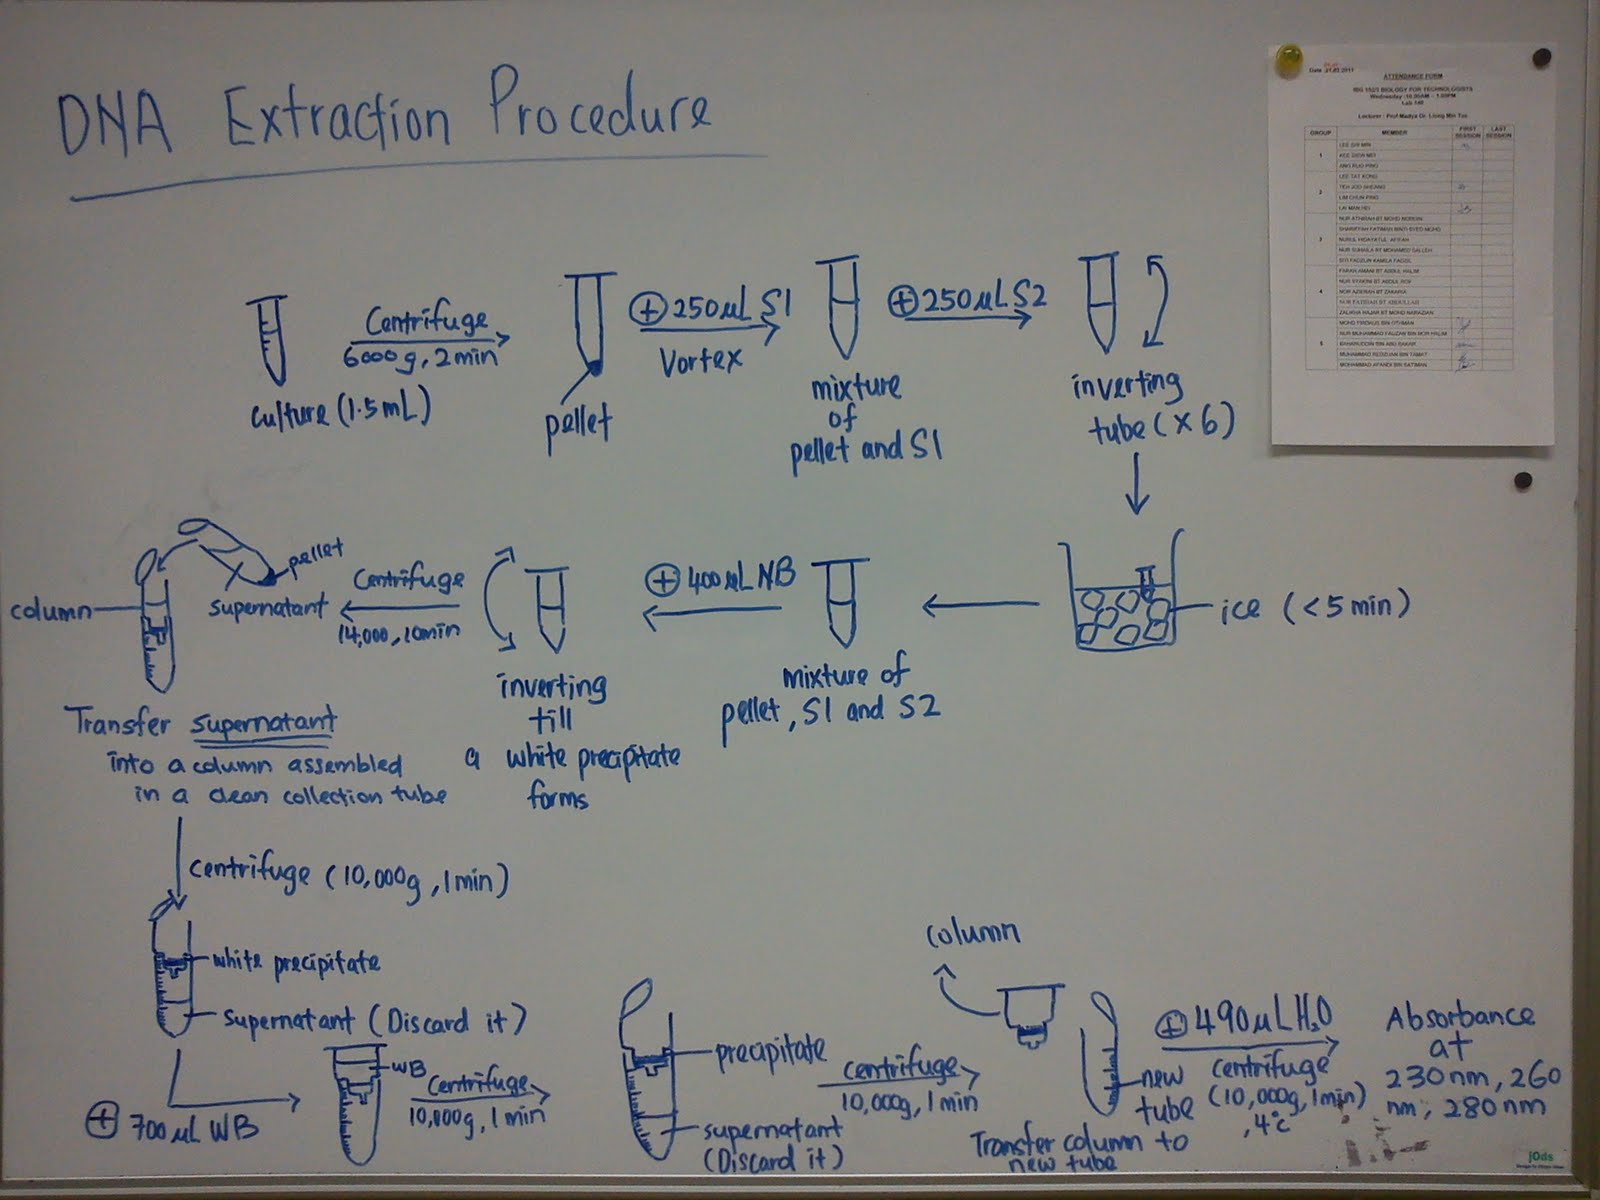 DNA Extraction Procedure
Centrifuge
6000g, 2min
culture (1.5mL)
pellet
⊕ 250µL S1
Vortex
mixture
of
pellet and S1
⊕ 250µL S2
inverting
tube (x 6)
ice (<5 min)
mixture of
pellet, S1 and S2
⊕ 400µL NB
inverting
till
a white precipitate
forms
Centrifuge
14,000, 10min
pellet
supernatant
column
Transfer supernatant
into a column assembled
in a clean collection tube
centrifuge (10,000g, 1min)
white precipitate
supernatant (Discard it)
⊕ 700µL WB
WB
Centrifuge
10,000g, 1min
precipitate
supernatant
(Discard it)
centrifuge
10,000g, 1min
column
new
tube
Transfer column to
new tube
⊕ 490µL H2O
Centrifuge
(10,000g, 1min)
, 4°c
Absorbance
at
230nm, 260
nm, 280nm
ATTENDANCE FORM
BIOLOGY FOR TECHNOLOGISTS
Lab 148
GROUP MEMBER FIRST SESSION LAST SESSION
1
2
3
4
5
jOds